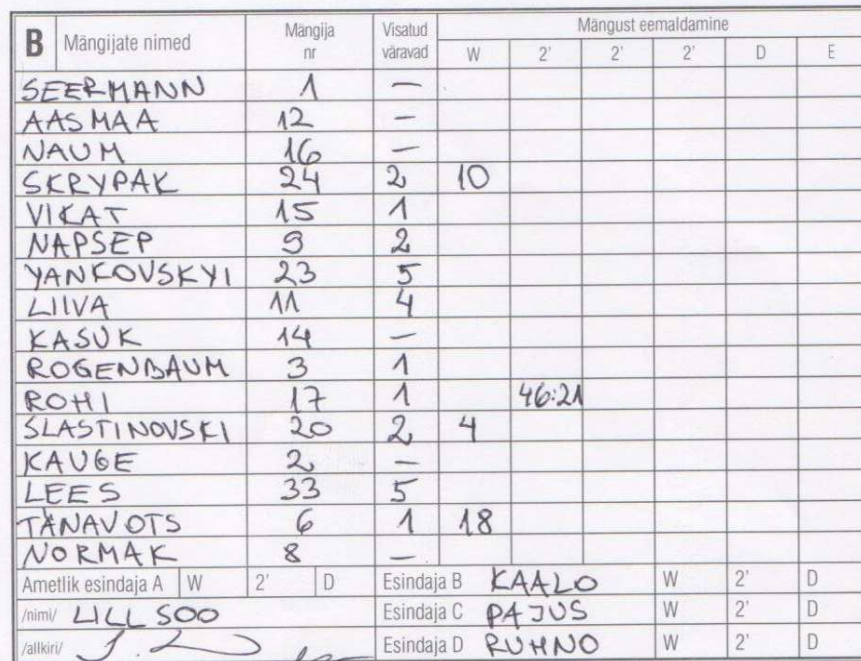 B Mängijate nimed Mängija nr Visatud väravad Mängust eemaldamine
W 2' 2' 2' D E
SEERMANN 1 —
AASMAA 12 —
NAUM 16 —
SKRYPAK 24 2 10
VIKAT 15 1
NAPSEP 9 2
YANKOVSKYI 23 5
LIIVA 11 4
KASUK 14 —
ROGENBAUM 3 1
ROHI 17 1 46:21
SLASTINOVSKI 20 2 4
KAUGE 2 —
LEES 33 5
TÄNAVOTS 6 1 18
NORMAK 8 —
Ametlik esindaja A W 2' D Esindaja B KAALO W 2' D
/nimi/ LILLSOO Esindaja C PAJUS W 2' D
/allkiri/ Esindaja D RUHNO W 2' D